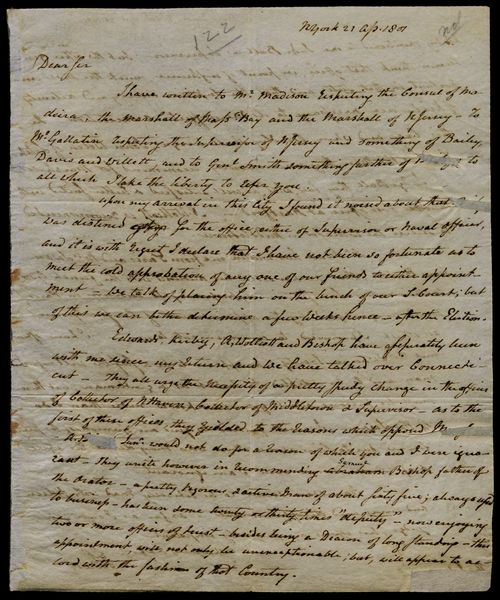 122
NYork 21 Ap. 1801
Dear Sir
I have written to Mr. Madison respecting the Consul of Ma-
deira, the Marshall of Massts Bay and the Marshall of NJersey - To
Mr. Gallatin respecting the Supervisor of NJersey and something of Bailey,
Davis and Willett, and to Genl. Smith something further of to
all which I take the liberty to refer you.
Upon my arrival in this City I found it noised about that
was destined for the office, either of Supervisor or Naval Officer,
and it is with regret I declare that I have not been so fortunate as to
meet the cold approbation of any one of our friends to either appoint-
ment - We talk of placing him on the bench of our S. Court; but
of this we can better determine a few weeks hence - after the Election.
Edwards, Kirby, A. Wolcott and Bishop have seperately been
with me since my return and we have talked over Connecti-
cut - They all urge the necessity of a pretty speedy change in the offices
of Collector of NHaven, Collector of Middletown & Supervisor - as to the
first of these offices, they yielded to the reasons which opposed
Junr. would not do for a reason of which you and I were igno-
rant - they unite however in recommending Samuel Bishop father of
the Orator - a pretty vigorous & active man of about sixty five; always
to business - has been some twenty or thirty times "deputy" - now enjoying
two or more offices of trust - besides being a Deacon of long standing - this
appointment will not only be unexceptionable; but, will appear to ac-
cord with the fashion of that Country.